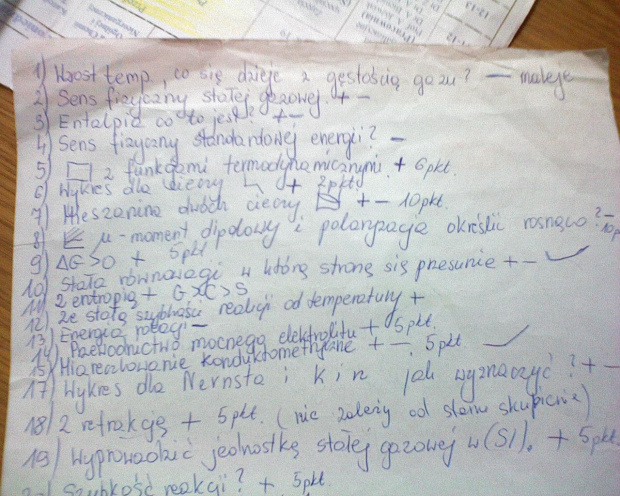 12-13
11-12
1) Wzrost temp, co się dzieje z gęstością gazu? — maleje
2) Sens fizyczny stałej gazowej. + —
3) Entalpia co to jest? + —
4) Sens fizyczny standardowej energii? —
5) z funkcjami termodynamicznymi. + 6pkt.
6) Wykres dla cieczy + 2pkt
7) Mieszanina dwóch cieczy + — 10pkt.
8) μ-moment dipolowy i polaryzacja określić rosnąco? —
9) ΔG>0 + 5pkt
10) Stała równowagi w którą stronę się przesunie + — ✓
11) z entropią + G>C>S
12) ze stałą szybkości reakcji od temperatury +
13) Energia —
14) Przewodnictwo mocnego elektrolitu + 5pkt.
15) Miareczkowanie konduktometryczne + —. 5pkt ✓
17) Wykres dla Nernsta i jak wyznaczyć? + —
18) z refrakcją + 5pkt. (nie zależy od stanu skupienia)
19) Wyprowadzić jednostkę stałej gazowej w (SI). + 5pkt.
Szybkość reakcji? + 5pkt.